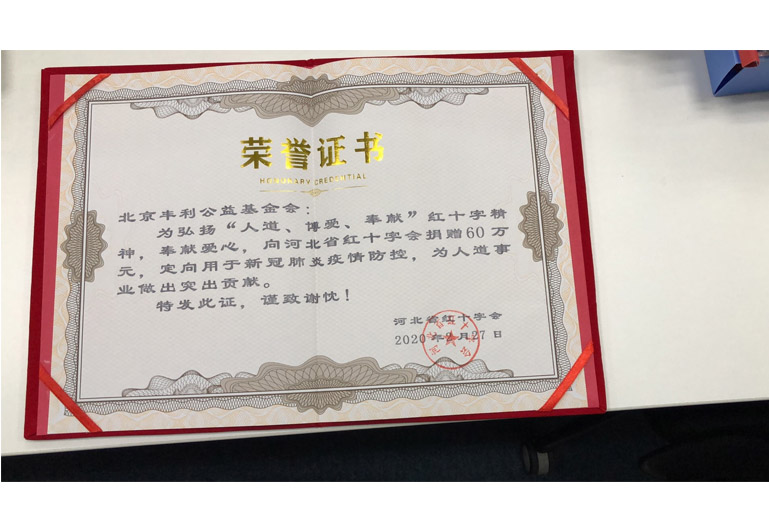 荣誉证书
HONORARY CREDENTIAL
北京丰利公益基金会：
为弘扬“人道、博爱、奉献”红十字精
神，奉献爱心，向河北省红十字会捐赠60万
元，定向用于新冠肺炎疫情防控，为人道事
业做出突出贡献。
特发此证，谨致谢忱！
河北省红十字会
2020年 月27日